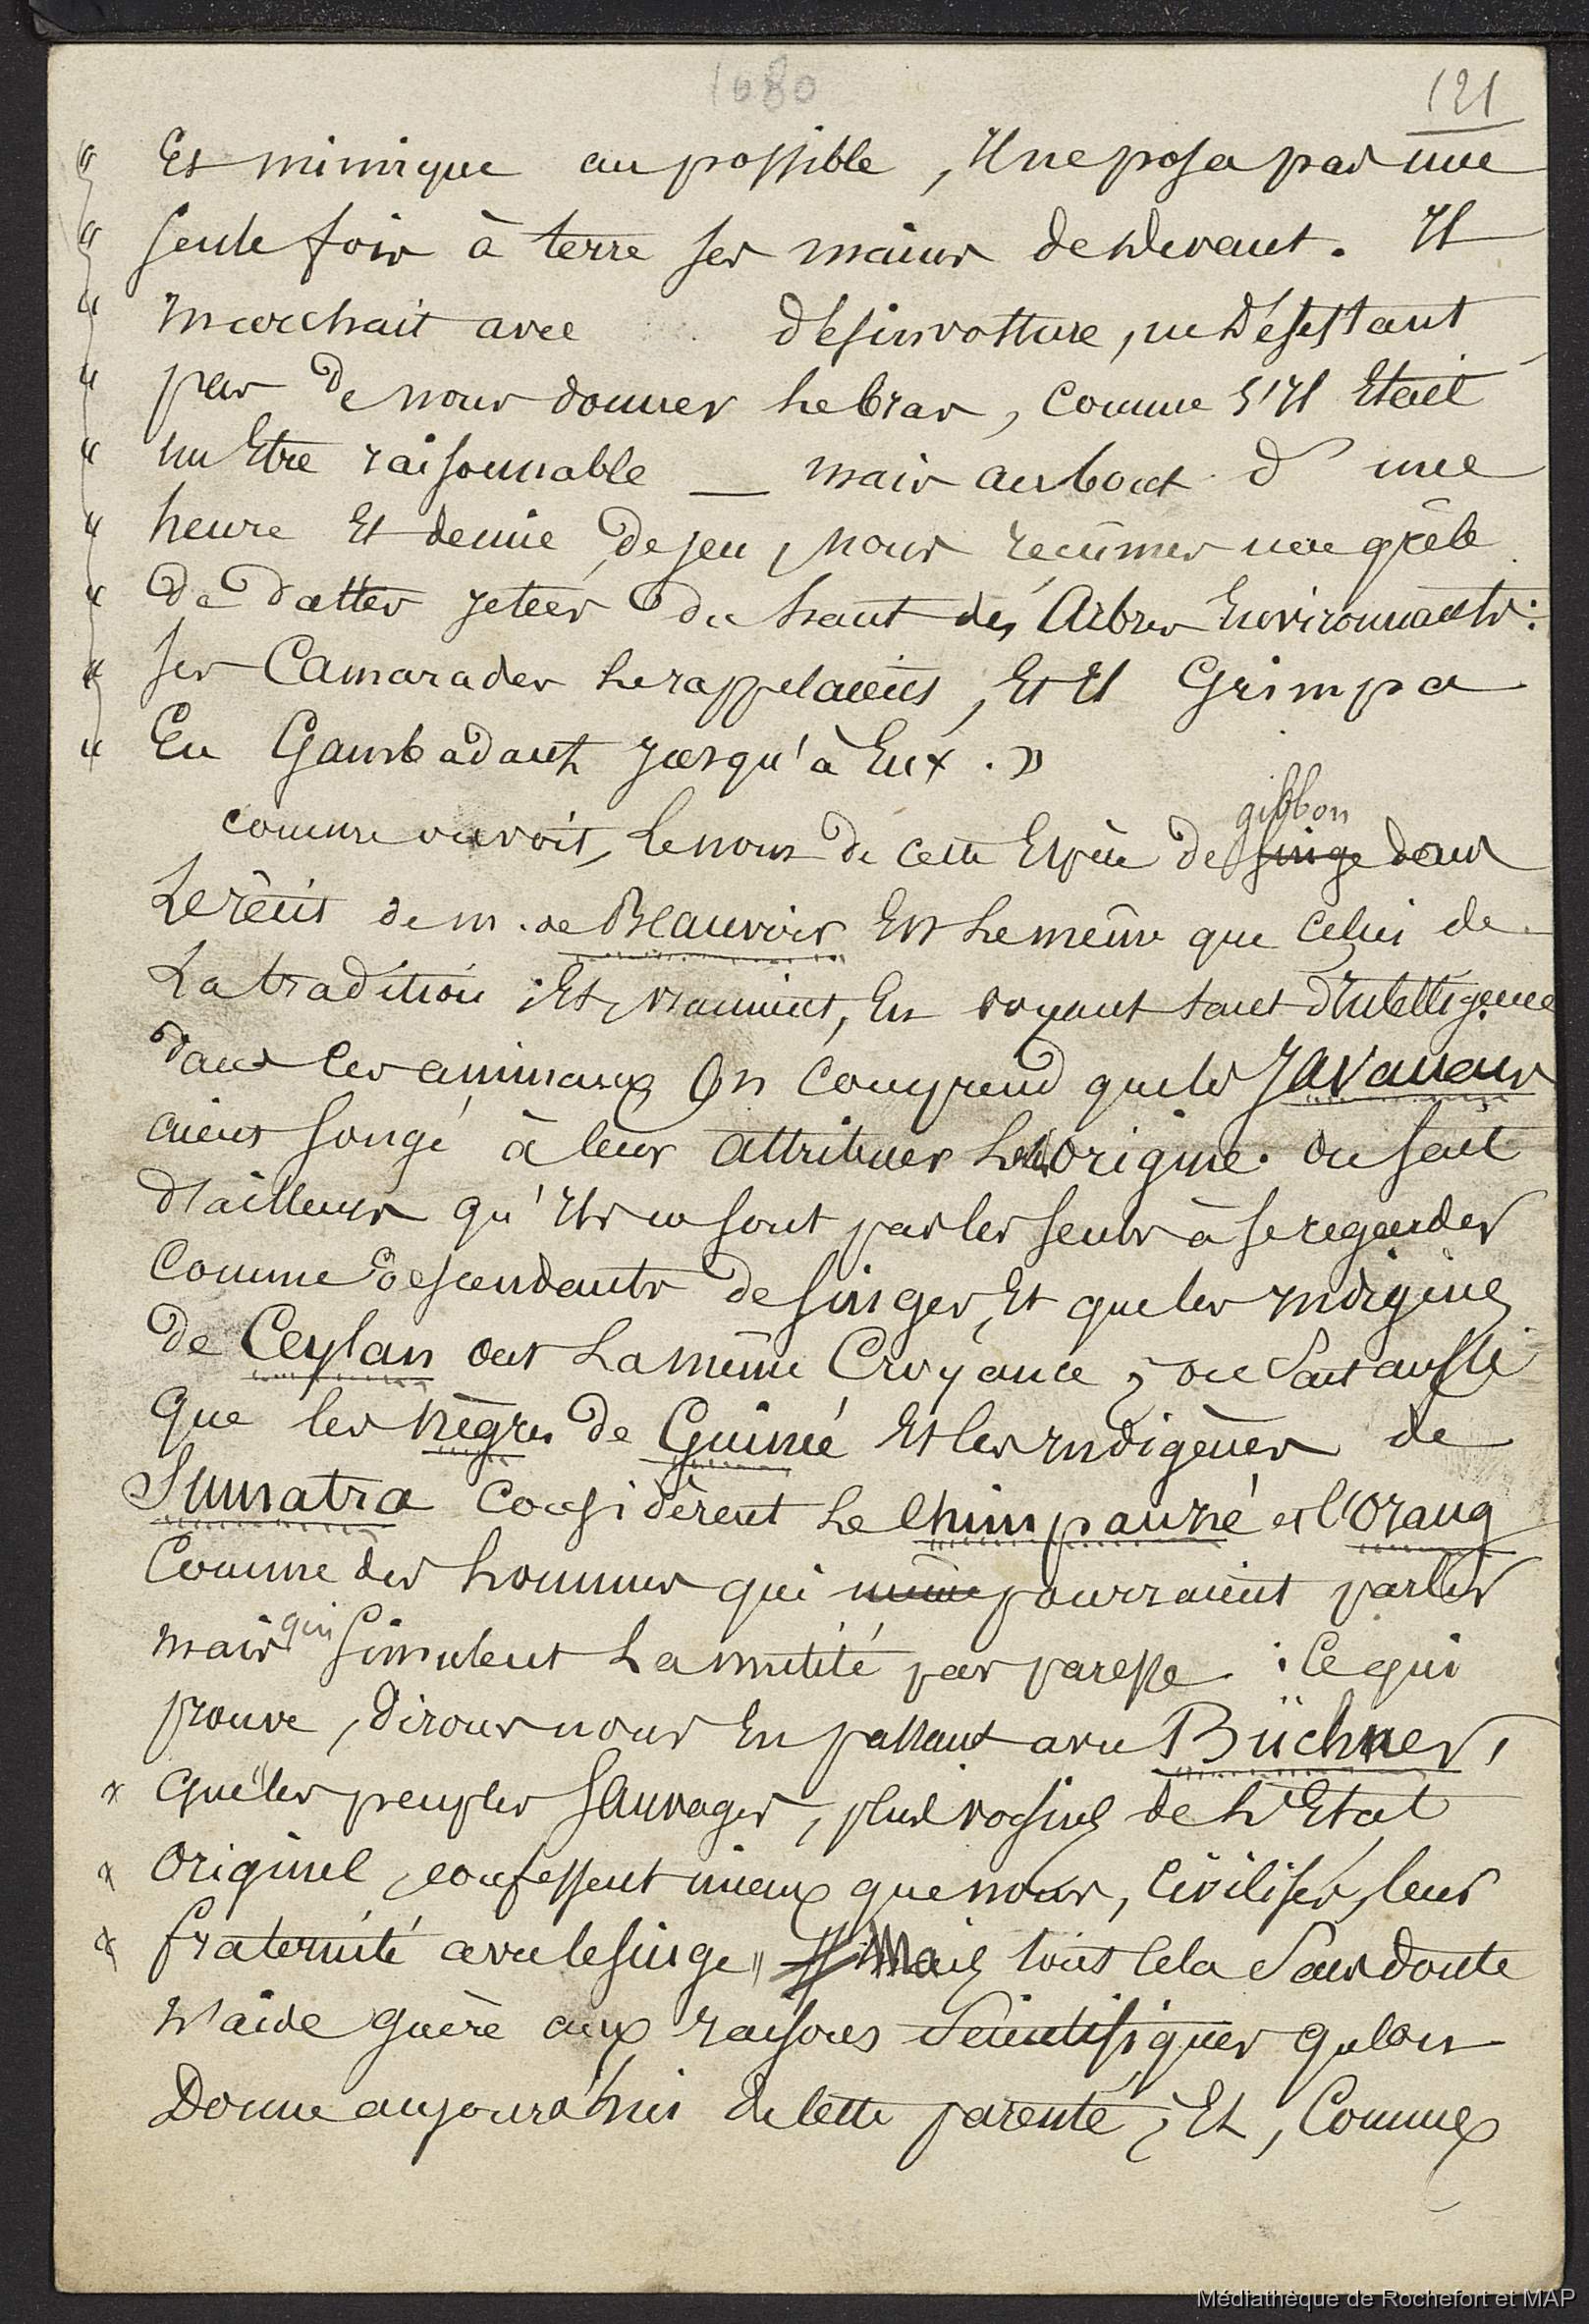 1680
121
" Et mimique au possible, Il ne posa pas une
" seule fois à terre ses mains de devant. Il
" marchait avec désinvolture, ne détestant
" pas de nous donner le bras, comme s'Il Etait
" un Etre raisonnable — mais au bout d'une
" heure Et demie de jeu, nous reçûmes une grêle
" de dattes jetées du haut des Arbres Environnants :
" ses Camarades le rappelaient, Et Il Grimpa
" En Gambadant jusqu'à Eux. »
gibbon
comme on voit, le nom de cette Espèce de singe dans
le récit de m. de Beauvoir Est le même que celui de
La tradition ; Et, vraiment, En voyant tant d'Intelligence
dans ces animaux On Comprend que les Javanais
aient songé à leur attribuer leur origine. on sait
d'ailleurs qu'Ils ne sont pas les seuls à se regarder
Comme descendants de singes, Et que les Indigènes
de Ceylan ont La même Croyance ; on Sait aussi
Que les nègres de Guinée Et les Indigènes de
Sumatra Considèrent le Chimpanzé et l'Orang
Comme des hommes qui même pourraient parler
mais qui simulent La mutité par paresse : Ce qui
prouve, dirons nous En passant avec Büchner,
" que "les peuples sauvages, plus voisins de l'Etat
" Originel, confessent mieux que nous, civilisés, leur
" fraternité avec le singe" Mais tout Cela Sans doute
N'aide guère aux raisons Scientifiques que l'on
Donne aujourd'hui de cette parenté ; Et, Comme
Médiathèque de Rochefort et MAP